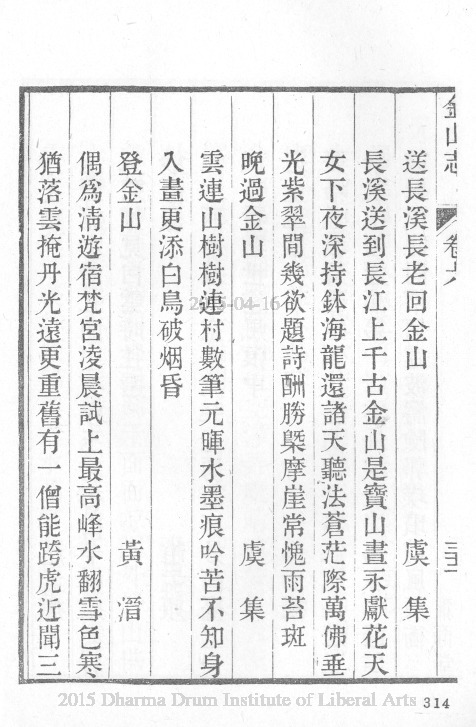 金山志 卷六
送長溪長老回金山 虞集
長溪送到長江上千古金山是寶山晝永獻花天
女下夜深持鉢海龍還諸天聽法蒼茫際萬佛垂
光紫翠間幾欲題詩酬勝槩摩崖常愧雨苔斑
晚過金山 虞集
雲連山樹樹連村數筆元暉水墨痕吟苦不知身
入畫更添白鳥破烟昏
登金山 黃溍
偶爲淸遊宿梵宮淩晨試上最高峰水翻雪色寒
猶落雲掩丹光遠更重舊有一僧能跨虎近聞三
2015-04-16
2015 Dharma Drum Institute of Liberal Arts
314